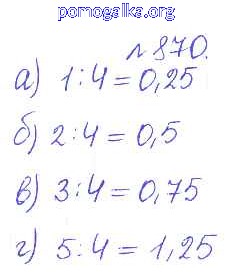 pomogalka.org
№870.
а) 1:4=0,25
б) 2:4=0,5
в) 3:4=0,75
г) 5:4=1,25